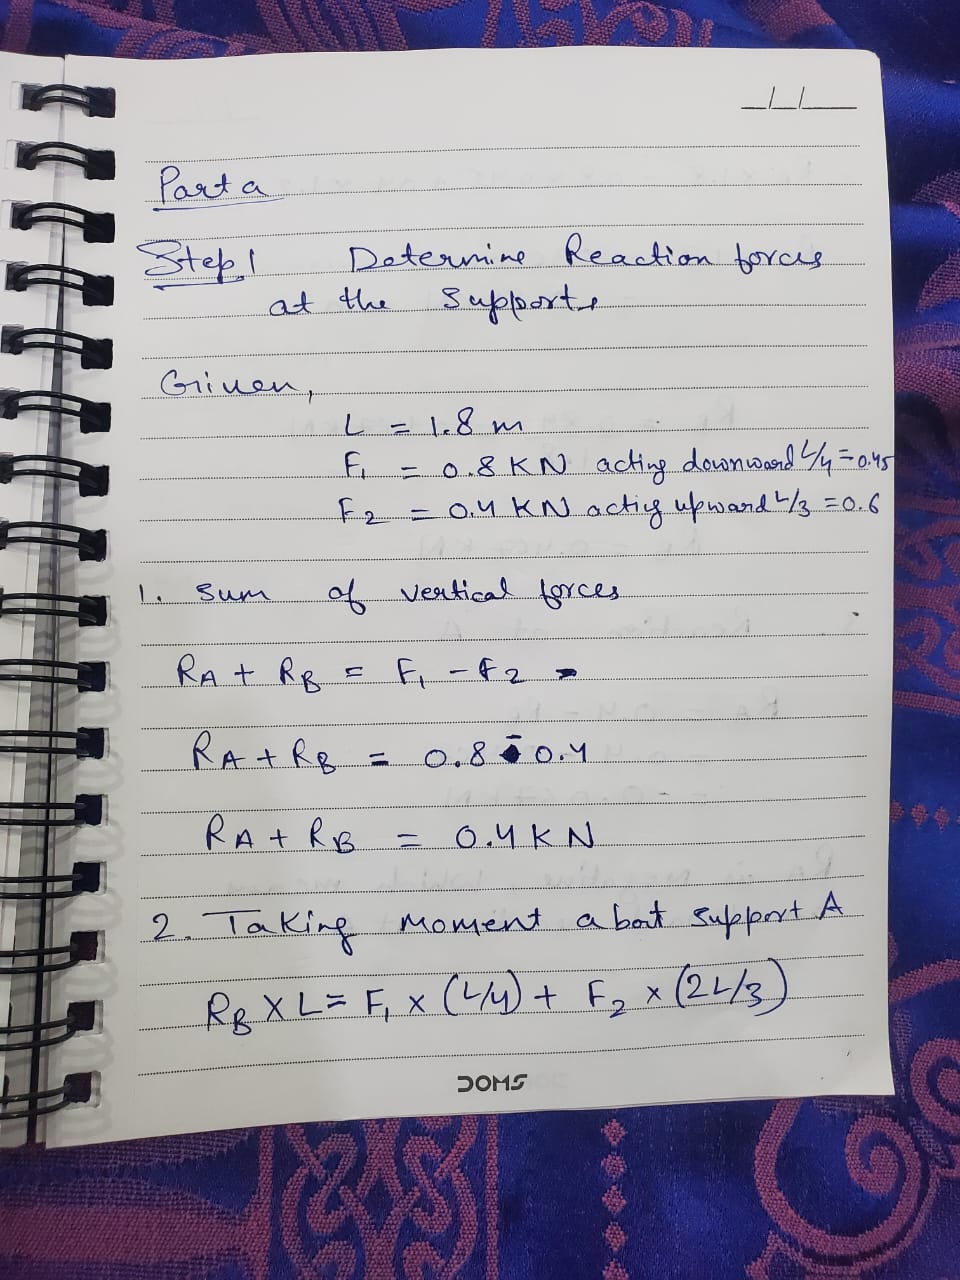 __/__/____
Part a
Step 1 Determine Reaction forces
at the supports
Given,
L = 1.8 m
F₁ = 0.8 KN acting downward L/4 = 0.45
F₂ = 0.4 KN actig upward L/3 = 0.6
1. Sum of vertical forces
RA + RB = F₁ - F₂
RA + RB = 0.8 - 0.4
RA + RB = 0.4 KN
2. Taking Moment about support A
RB X L = F₁ x (L/4) + F₂ x (2L/3)
DOMS